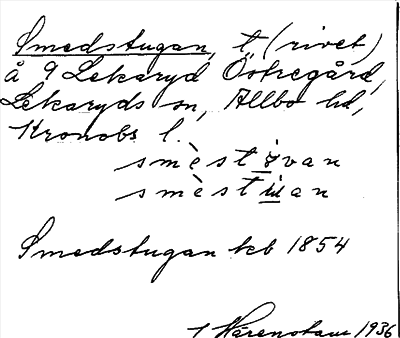 Smedstugan, t. (rivet)
å 9 Lekaryd Östregård,
Lekaryds sn, Allbo hd,
Kronobs l.
smèstɵvan
smèstɯan
Smedstugan kcb 1854
1936